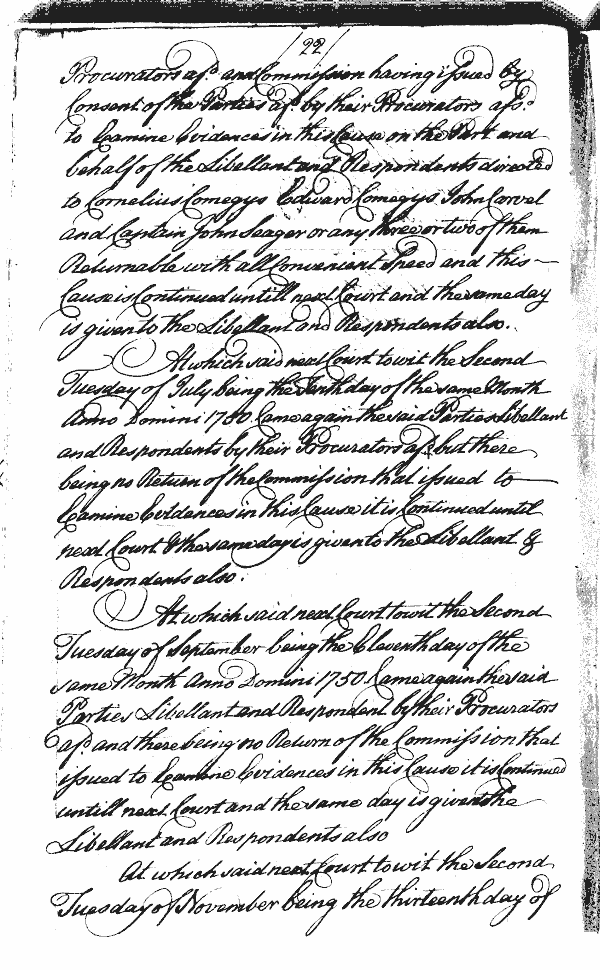 /22/
Procurators afsd. and Commifsion having ifsued by
Consent of the Parties afsd. by their Procurators afsd.
to Examine Evidences in this Cause on the Part and
behalf of the Libellant and Respondents directed
to Cornelius Comegys Edward Comegys John Carvel
and Captain John Seager or any three or two of them
Returnable with all Convenient Speed and this
Cause is Continued untill next Court and the same day
is given to the Libellant and Respondents also.
At which said next Court to wit the Second
Tuesday of July being the Tenth day of the same Month
Anno Domini 1750 Came again the said Parties Libellant
and Respondents by their Procurators afsd. but there
being no Return of the Commifsion that ifsued to
Examine Evidences in this Cause it is Continued until
next Court & the same day is given to the Libellant &
Respondents also.
At which said next Court to wit the Second
Tuesday of September being the Eleventh day of the
same Month Anno Domini 1750 Came again the said
Parties Libellant and Respondent by their Procurators
afsd. and there being no Return of the Commifsion that
ifsued to Examine Evidences in this Cause it is Continued
untill next Court and the same day is given the
Libellant and Respondents also
At which said next Court to wit the Second
Tuesday of November being the thirteenth day of